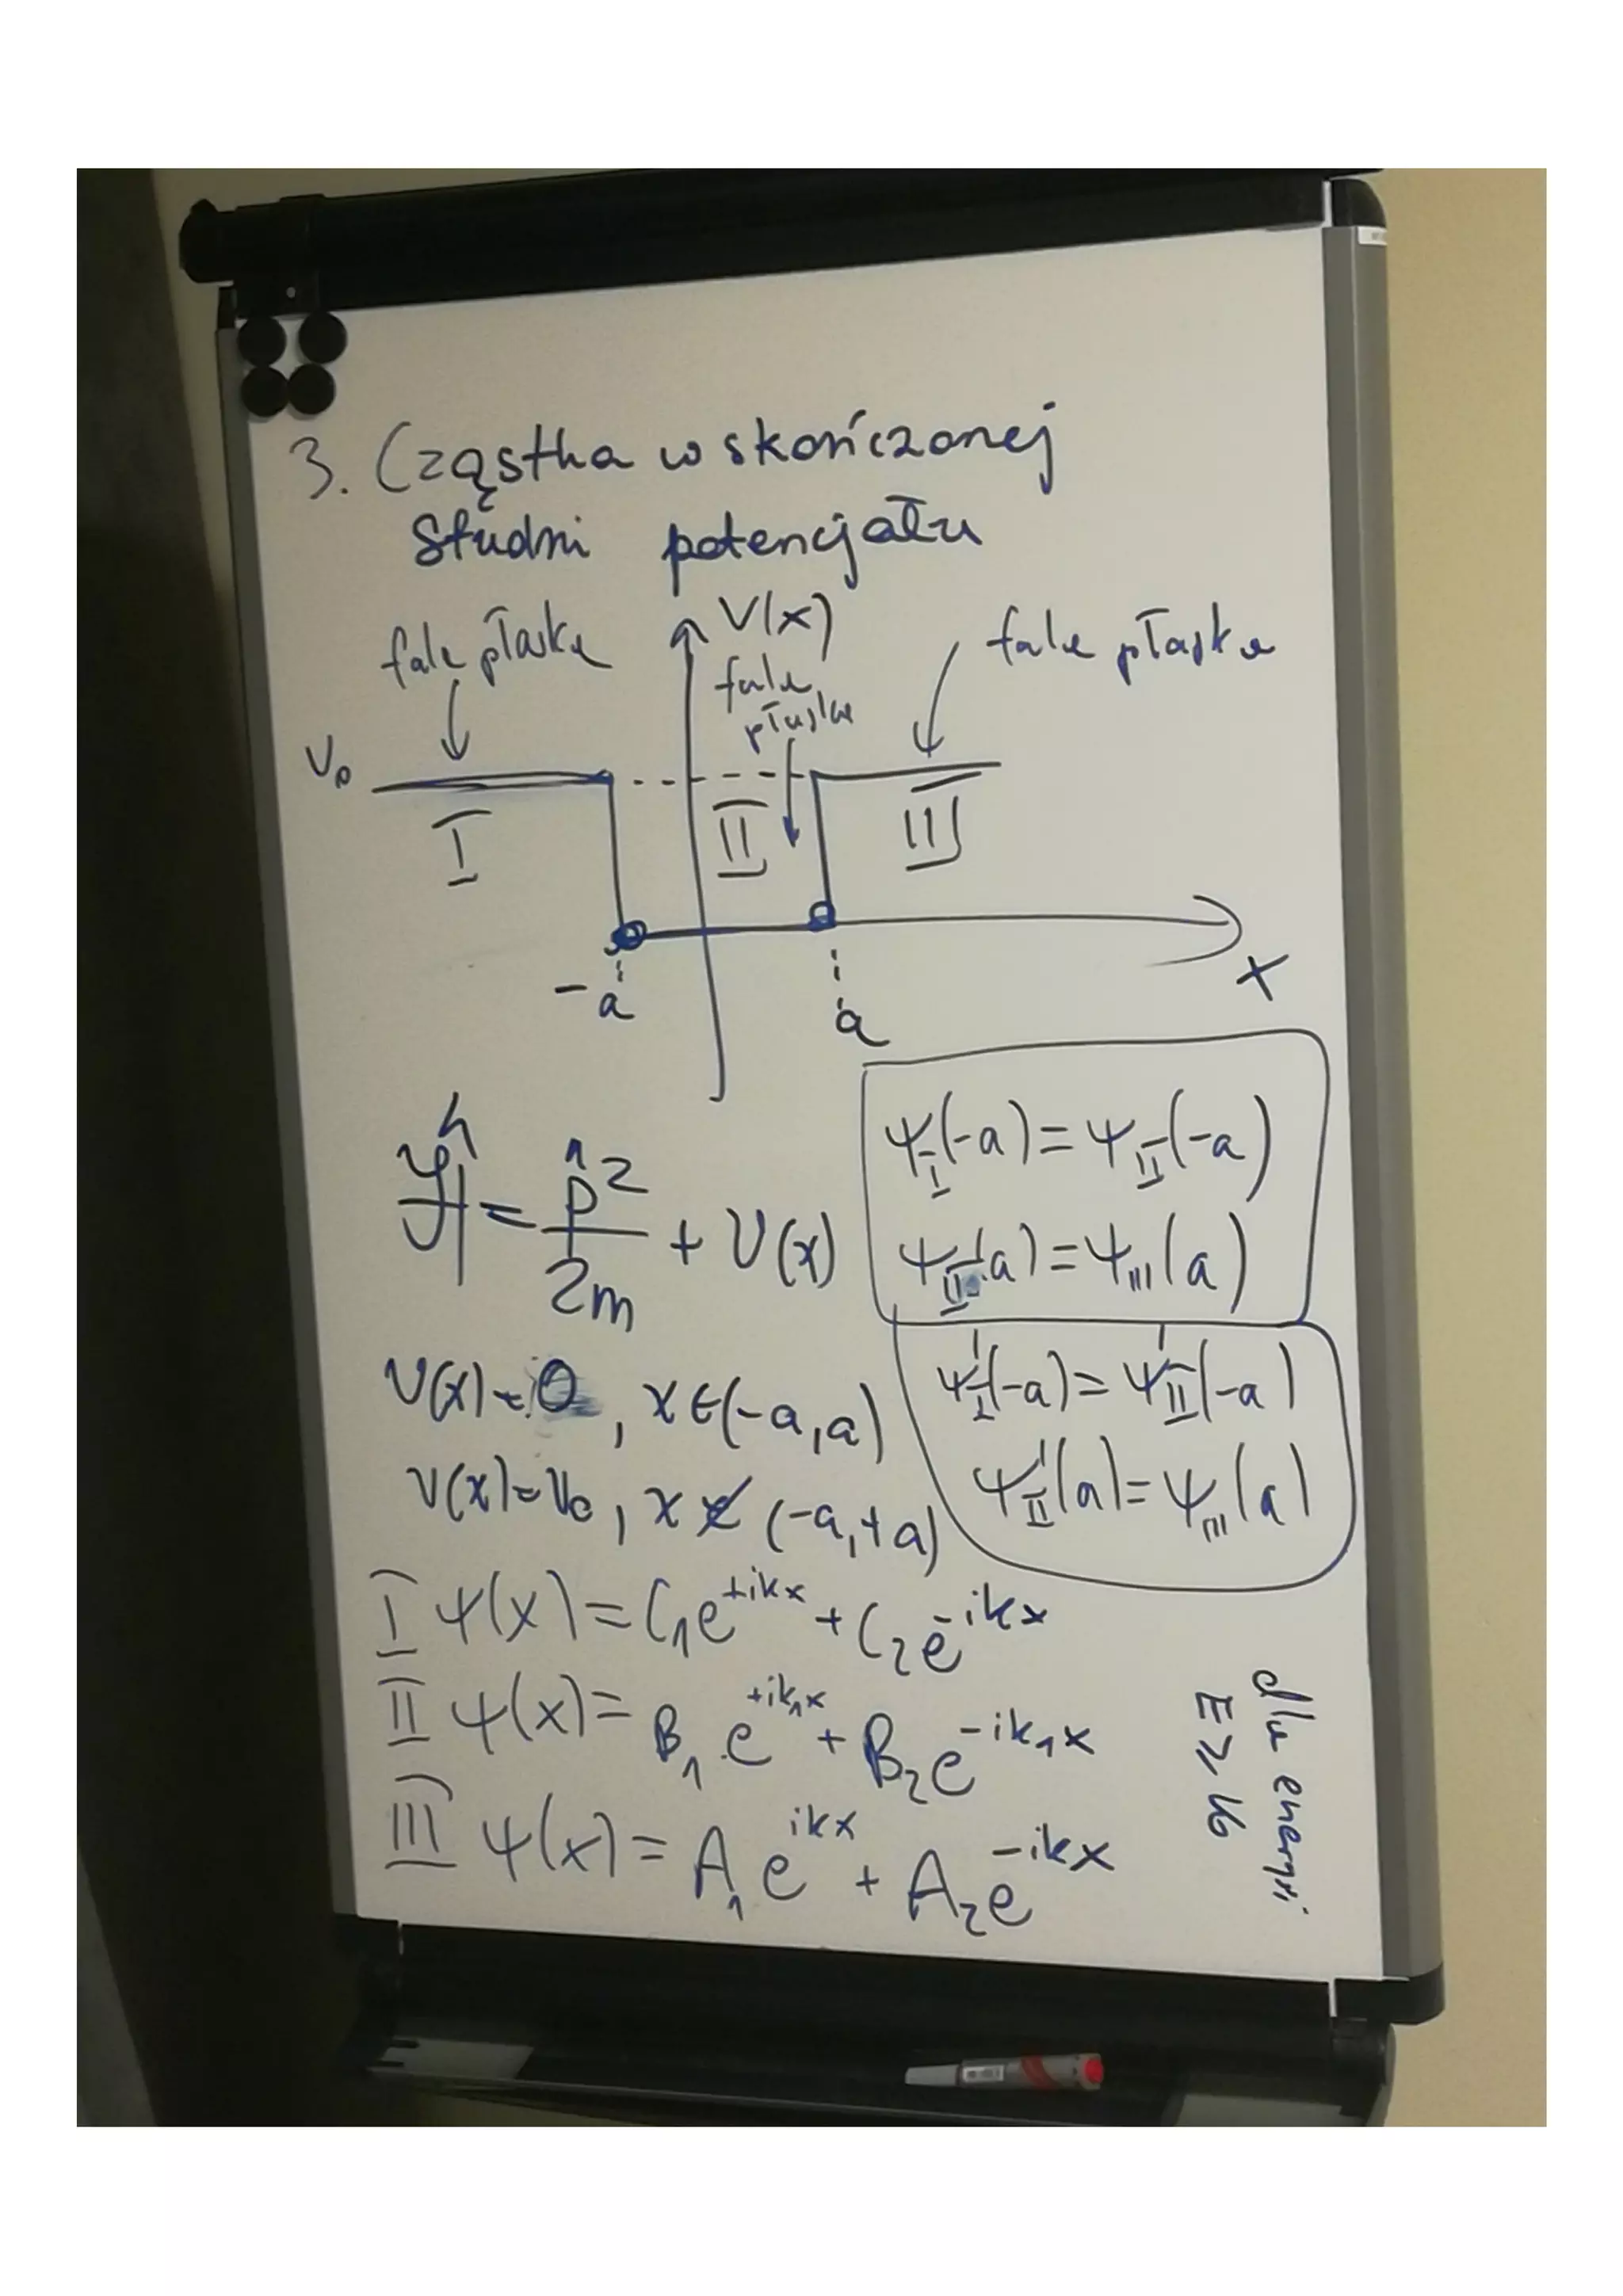 3. Cząstka w skończonej
studni potencjału
fale płaskie
V(x)
fale płaskie
fale płaskie
V₀
I
II
III
-a
a
x
Ĥ = p̂²/2m + V(x)
ψ_I(-a) = ψ_II(-a)
ψ_II(a) = ψ_III(a)
ψ'_I(-a) = ψ'_II(-a)
ψ'_II(a) = ψ_III(a)
V(x) = 0, x ∈ (-a, a)
V(x) = V₀, x ∉ (-a, +a)
I ψ(x) = C₁e^{+ikx} + C₂e^{-ikx}
II ψ(x) = B₁e^{+ik₁x} + B₂e^{-ik₁x}
III ψ(x) = A₁e^{ikx} + A₂e^{-ikx}
dla energii
E ⩾ V₀